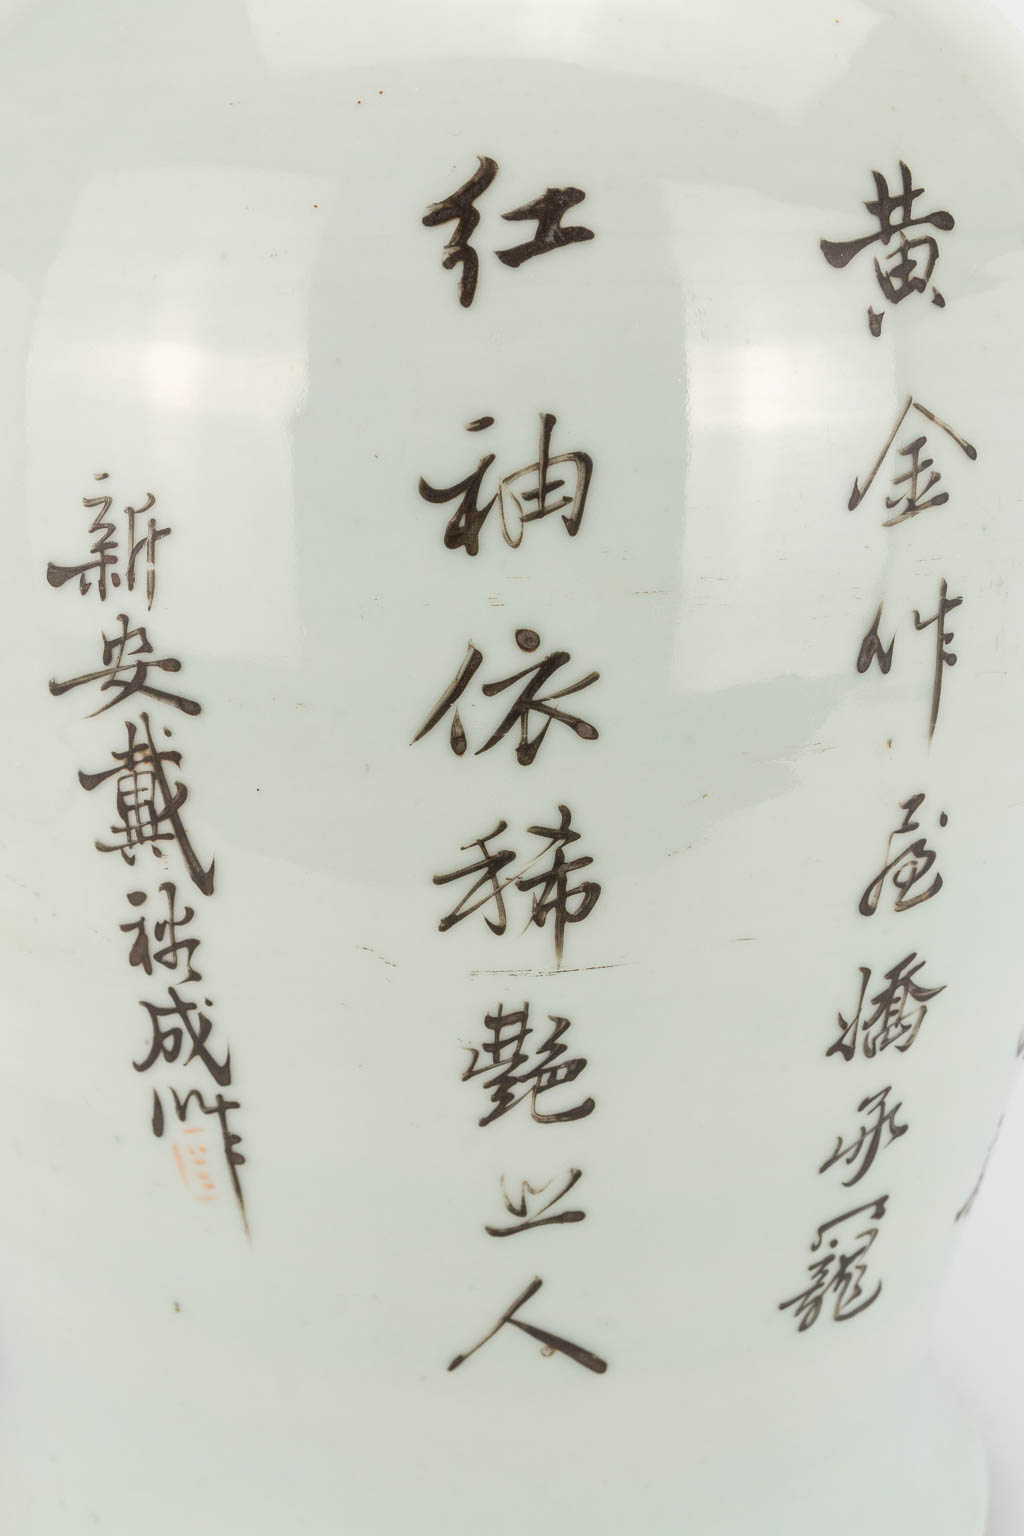 黄金作屋嬌承寵
紅袖依稀艷㞢人
新安戴裕成作